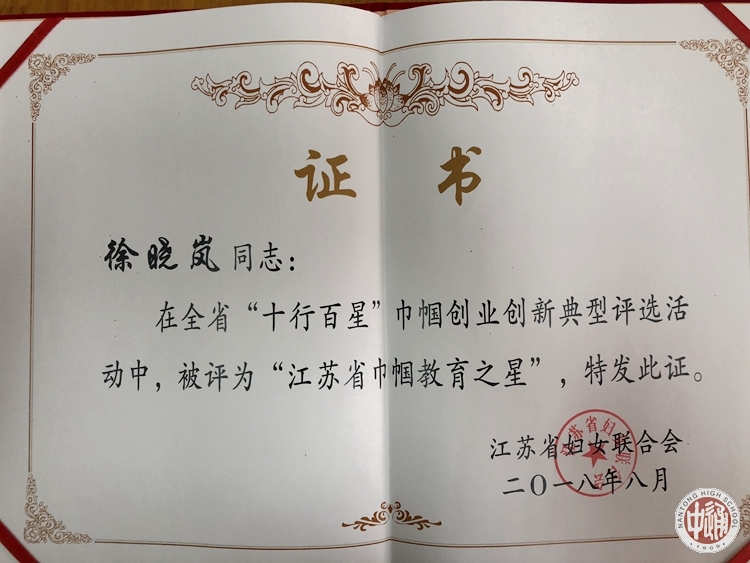 证书
徐晓岚同志：
在全省“十行百星”巾帼创业创新典型评选活
动中，被评为“江苏省巾帼教育之星”，特发此证。
江苏省妇女联合会
二〇一八年八月
NANTONG HIGH SCHOOL
中通
1909